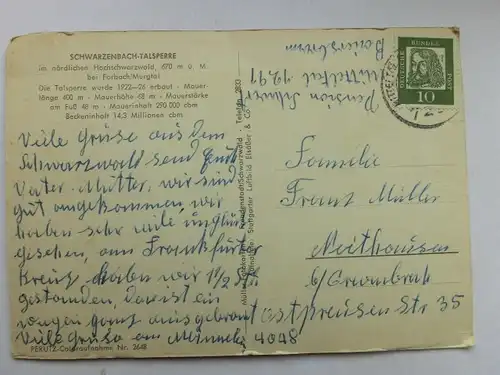 SCHWARZENBACH-TALSPERRE
im nördlichen Hochschwarzwald, 670 m ü. M.
bei Forbach/Murgtal
Die Talsperre wurde 1922-26 erbaut - Mauer-
länge 400 m - Mauerhöhe 68 m - Mauerstärke
am Fuß 48 m - Mauerinhalt 290 000 cbm
Beckeninhalt 14,3 Millionen cbm
Viele Grüse aus dem
Schwarzwald send
Vater - Mutter, wir sind
gut angekommen, wir
haben sehr viele
gesehen, am Frankfurter
Kreuz haben wir 1 1/2 Stu
gestanden, da ist ein
wagen ganz ausgebrant
Viele Grüse
PERUTZ-Coloraufnahme Nr. 3648
Freudenstadt/Schwarzwald - Telefon 2833
Stuttgarter Luftbild Elsäßer & Co.
Pension
DEUTSCHE BUNDESPOST
10
Familie
Franz Müller
b/
Ostpreusen Str 35
4048